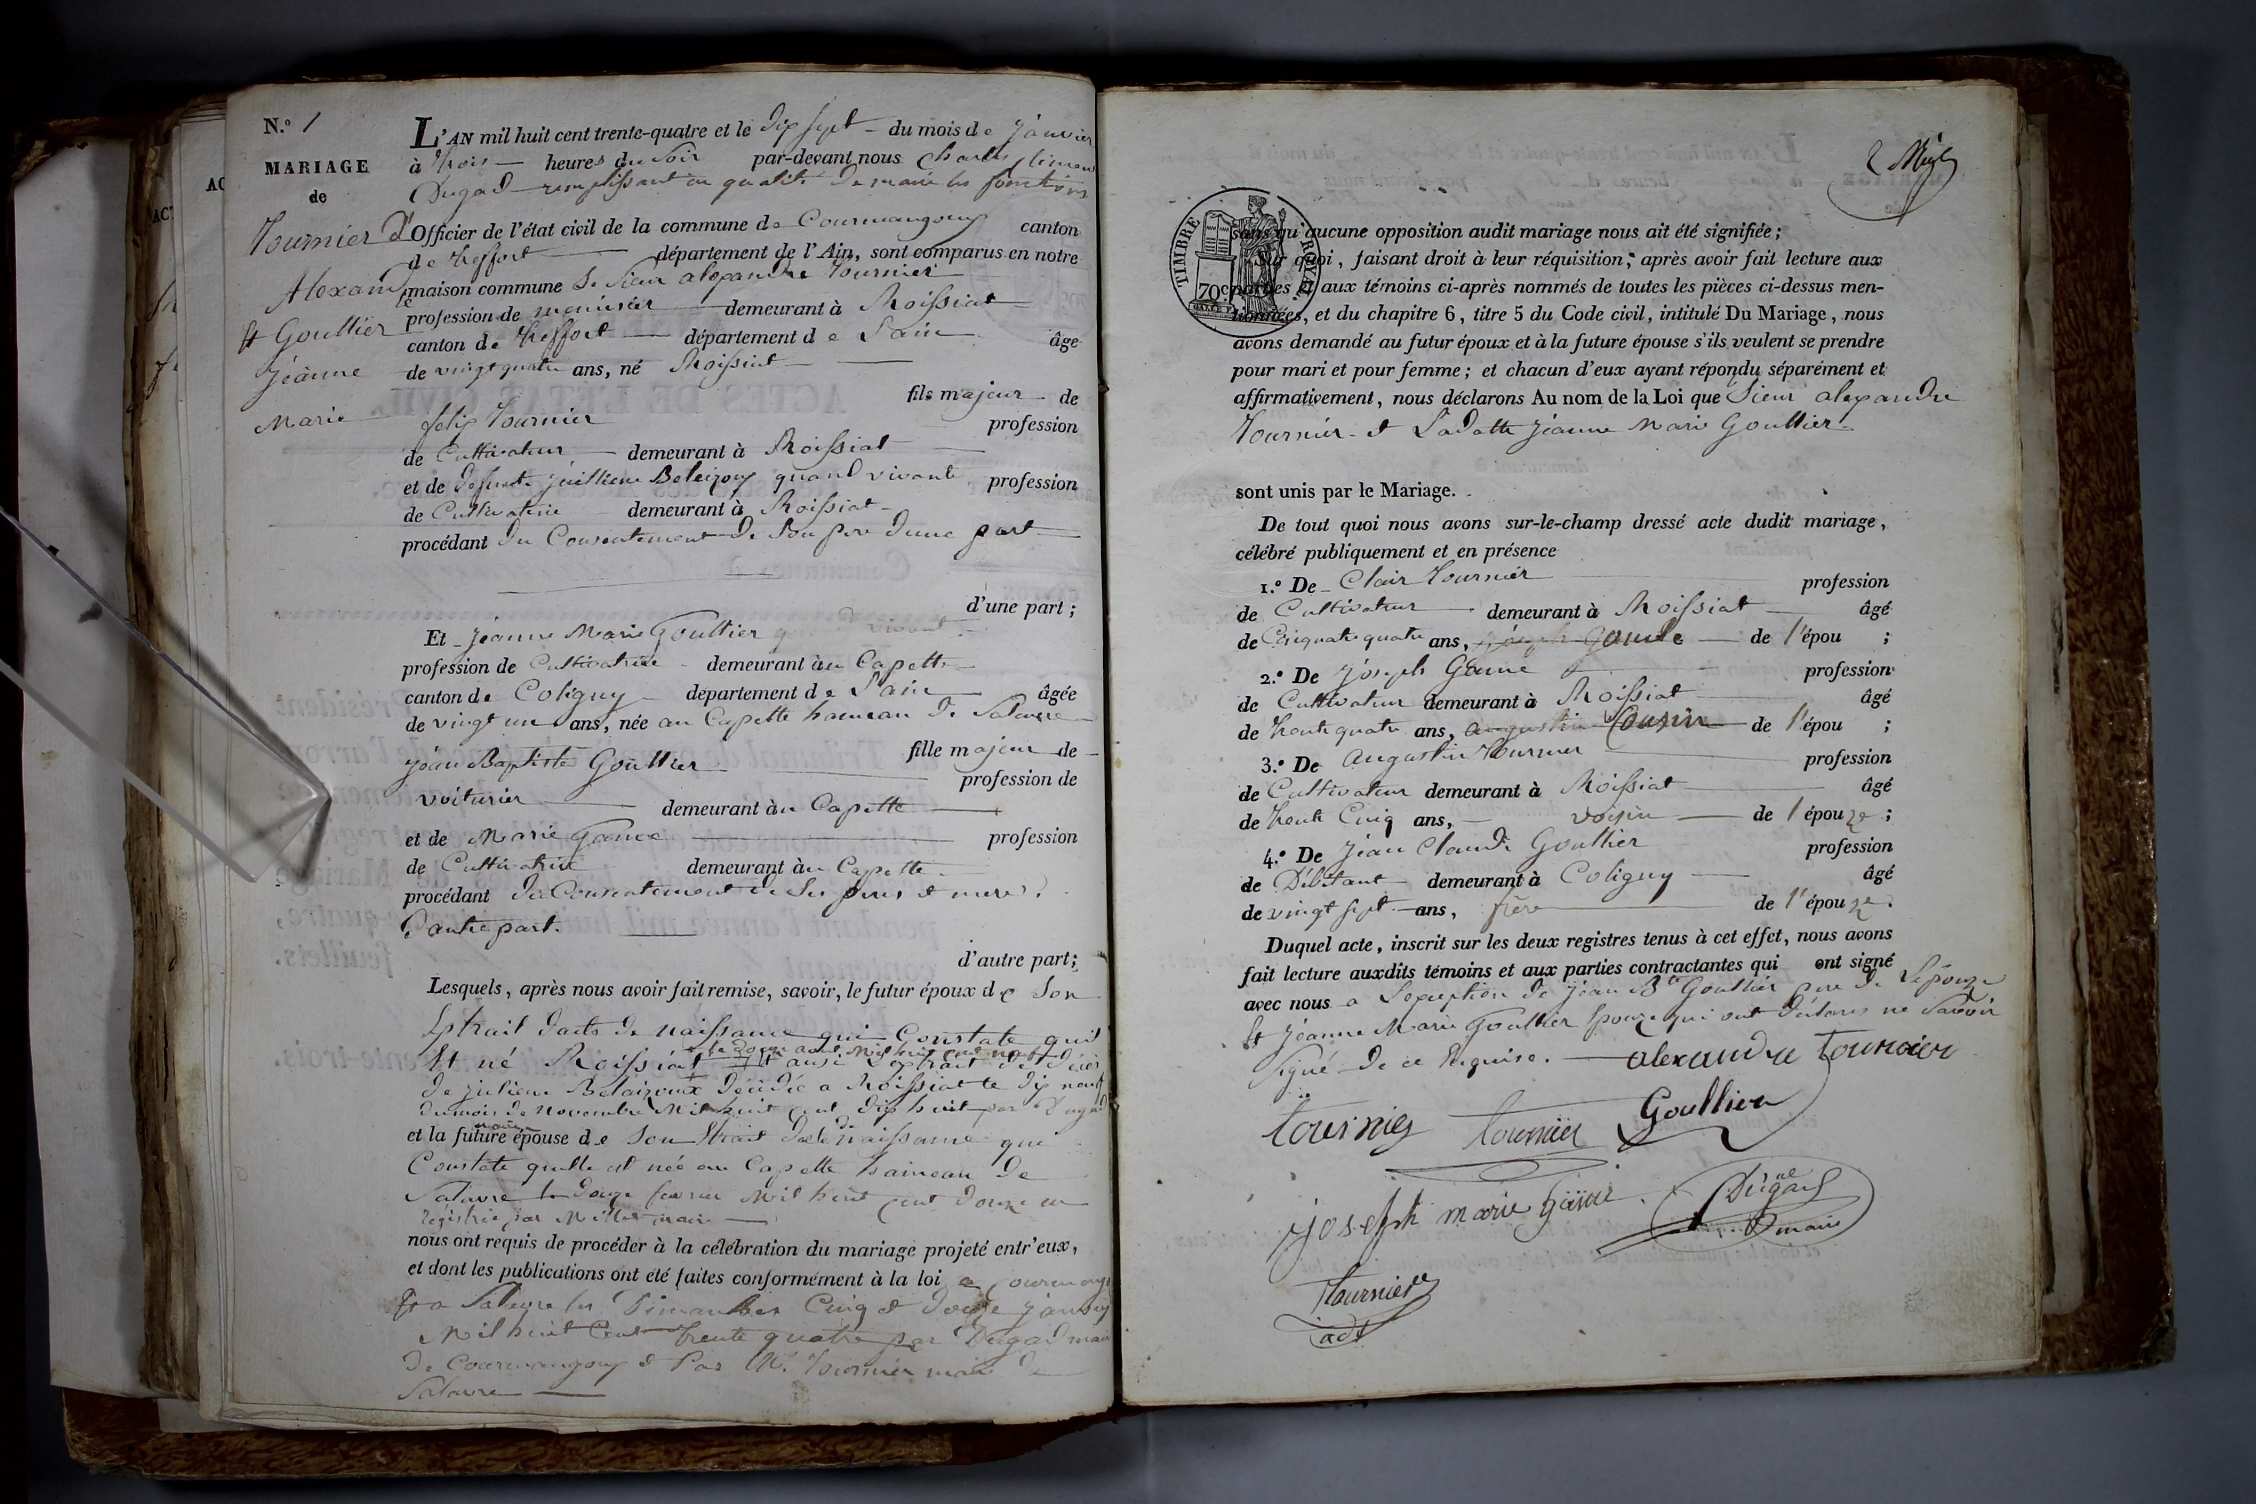 N.º 1
MARIAGE
de
Tournier
Alexandre
Et Goultier
jéanne
Marie
L'AN mil huit cent trente-quatre et le dix sept du mois de janvier
à trois heures du soir par-devant nous Charles
Dugad remplissant en qualité de maire les fonctions
d'Officier de l'état civil de la commune de Courmangoux canton
de treffort département de l'Ain, sont comparus en notre
maison commune Le Sieur alexandre Tournier
profession de menuisier demeurant à Roissiat
canton de treffort département de L'ain âgé
de vingt quatre ans, né Roissiat
fils majeur de
felix Tournier profession
de Cultivateur demeurant à Roissiat
et de defunte jullienne quand vivante profession
de Cultivatrice demeurant à Roissiat
procédant du Consentement de Son pere d'une part
d'une part ;
Et jéanne Marie Goultier
profession de Cultivatrice demeurant au Capette
canton de Coligny département de L'ain âgée
de vingt un ans, née au Capette hameau de Salavre
fille majeur de
jéan Baptiste Goultier profession de
voiturier demeurant au Capette
et de Marie Gance profession
de Cultivatrice demeurant au Capette
procédant du Consentement de Ses peres et meres
d'autre part.
d'autre part ;
Lesquels, après nous avoir fait remise, savoir, le futur époux de Son
Extrait d'acte de naissance qui Constate qu'il
Et né Roissiat le douze aout mil huit cent neuf Et ausi L'extrait de décès
de julienne décédée a Roissiat le dix neuf
du mois de novembre mil huit cent dix huit par Dugad
maire
et la future épouse de Son Extrait d'acte de naissance qui
Constate quelle est née au Capette hameau de
Salavre le douze fevrier mil huit cent douze en
registrée par Millet maire
nous ont requis de procéder à la célébration du mariage projeté entr'eux,
et dont les publications ont été faites conformément à la loi a Courmangoux
Et a Salavre les Dimanches Cinq et douze janvier
mil huit Cent trente quatre par Dugad maire
de Courmangoux et Par Mr. Tournier maire de
Salavre
TIMBRE ROYAL
70c
sans qu'aucune opposition audit mariage nous ait été signifiée ;
Sur quoi, faisant droit à leur réquisition, après avoir fait lecture aux
parties et aux témoins ci-après nommés de toutes les pièces ci-dessus men-
tionnées, et du chapitre 6, titre 5 du Code civil, intitulé Du Mariage, nous
avons demandé au futur époux et à la future épouse s'ils veulent se prendre
pour mari et pour femme ; et chacun d'eux ayant répondu séparément et
affirmativement, nous déclarons Au nom de la Loi que Sieur alexandre
Tournier et Ladatte jéanne Marie Goultier
sont unis par le Mariage.
De tout quoi nous avons sur-le-champ dressé acte dudit mariage,
célébré publiquement et en présence
1.º De Clair Tournier profession
de Cultivateur demeurant à Roissiat âgé
de Cinquate quatre ans, de l'épou ;
2.º De Joseph Game profession
de Cultivateur demeurant à Roissiat âgé
de trente quatre ans, augustin Cousin de l'épou ;
3.º De augustin Tournier profession
de Cultivateur demeurant à Roissiat âgé
de trente Cinq ans, voisin de l'épouze ;
4.º De jéan Claude Goultier profession
de Débitant demeurant à Coligny âgé
de vingt sept ans, frère de l'épouze.
Duquel acte, inscrit sur les deux registres tenus à cet effet, nous avons
fait lecture auxdits témoins et aux parties contractantes qui ont signé
avec nous a L'exception de jéan Bte Goultier pere de L'épouze
Et jéanne Marie Goultier Epouze qui ont déclarés ne Savoir
Signé de ce Requise. alexandre tournier
tournier tournier Goultier
joseph marie Dugad
maire
tournier
adt